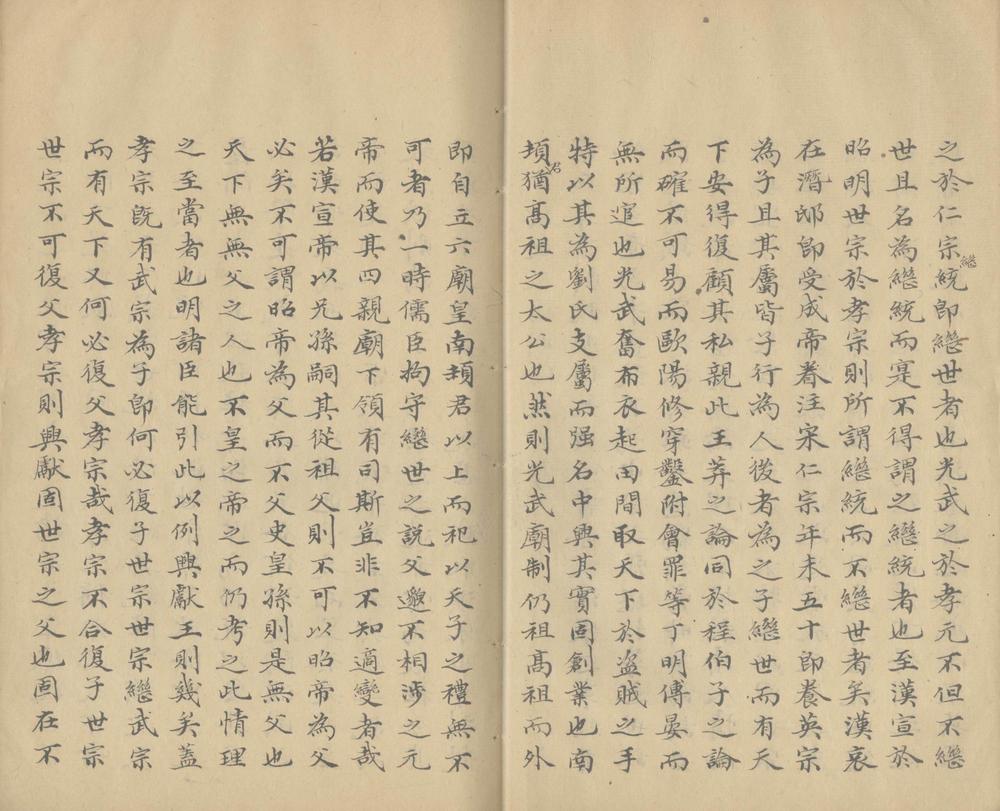 之於仁宗統即繼世者也光武之於孝元不但不繼
繼
世且名為繼統而寔不得謂之繼統者也至漢宣於
昭明世宗於孝宗則所謂繼統而不繼世者矣漢哀
在潛邸即受成帝眷注宋仁宗年未五十即養英宗
為子且其屬皆子行為人後者為之子繼世而有天
下安得復顧其私親此王莽之論同於程伯子之論
而確不可易而歐陽修穿鑿附會罪等丁明傅晏而
無所逭也光武奮布衣起田間取天下於盜賊之手
特以其為劉氏支屬而强名中興其實固創業也南
頓猶髙祖之太公也然則光武廟制仍祖髙祖而外
君
即自立六廟皇南頓君以上而祀以天子之禮無不
可者乃一時儒臣拘守繼世之説父邈不相涉之元
帝而使其四親廟下領有司斯豈非不知適變者哉
若漢宣帝以兄孫嗣其從祖父則不可以昭帝為父
必矣不可謂昭帝為父而不父史皇孫則是無父也
天下無無父之人也不皇之帝之而仍考之此情理
之至當者也明諸臣能引此以例興獻王則幾矣蓋
孝宗旣有武宗為子即何必復子世宗世宗繼武宗
而有天下又何必復父孝宗哉孝宗不合復子世宗
世宗不可復父孝宗則興獻固世宗之父也固在不